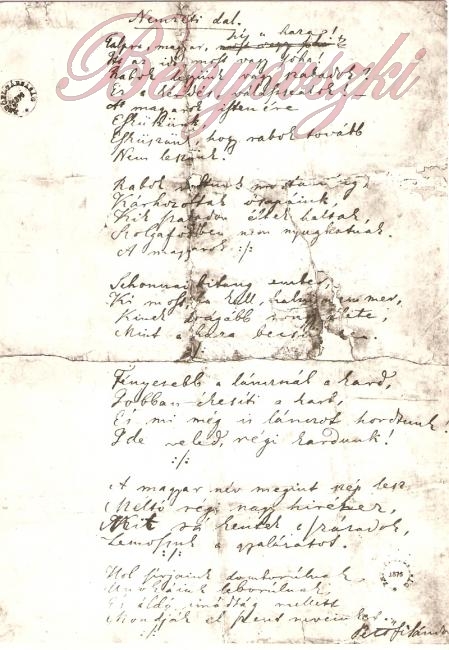 Nemzeti dal.
hív a haza!
Talpra magyar, most vagy soha!
Itt az idő, most vagy soha!
Rabok legyünk vagy szabadok?
Ez a kérdés, válasszatok! –
A magyarok istenére
Esküszünk,
Esküszünk, hogy rabok tovább
Nem leszünk!
Rabok voltunk mostanáig,
Kárhozottak ősapáink,
Kik szabadon éltek haltak,
Szolgaföldben nem nyughatnak.
A magyarok :/:
Sehonnai bitang ember,
Ki most, ha kell, halni nem mer,
Kinek drágább rongy élete,
Mint a haza becsülete.
Fényesebb a láncznál a kard,
Jobban ékesíti a kart,
És mi még is lánczot hordtunk!
Ide veled, régi kardunk!
:/:
A magyar név megint szép lesz,
Méltó régi nagy híréhez,
Mit rá kentek a századok,
Lemossuk a gyalázatot.
:/:
Hol sírjaink domborulnak,
Unokáink leborulnak,
És áldó imádság mellett
Mondják el szent neveinket.
:/:
Petőfi Sándor
1875
Benyovszki